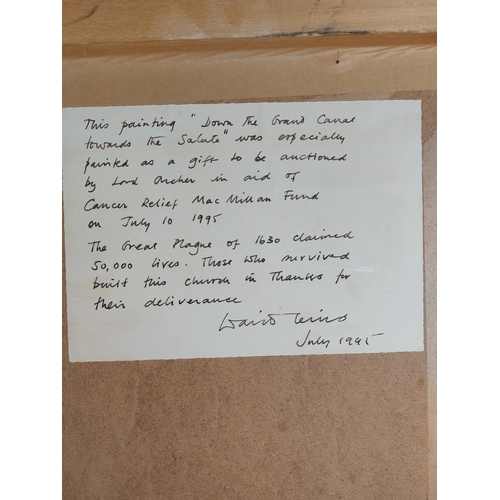 This painting "Down the Grand Canal
towards the Salute" was especially
painted as a gift to be auctioned
by Lord Archer in aid of
Cancer Relief MacMillan Fund
on July 10 1995
The Great Plague of 1630 claimed
50,000 lives. Those who survived
built this church in Thanks for
their deliverance
July 1995